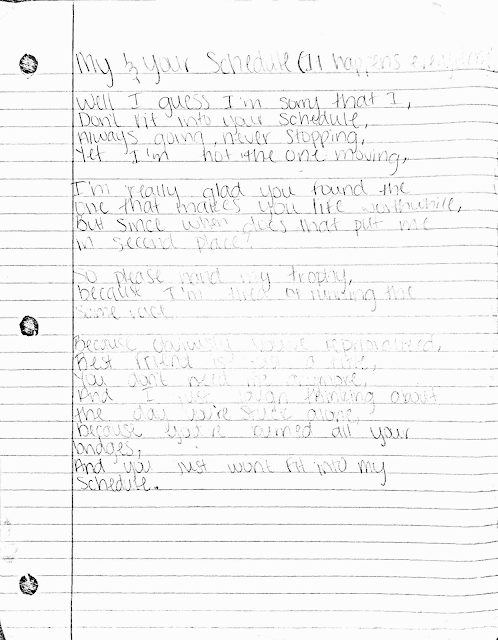 My & your Schedule (It happens everytime
Well I guess I'm sorry that I,
Don't Fit into your schedule,
Always going, never stopping,
Yet I'm not the one moving,
I'm really glad you found the
one that makes you life worthwhile,
But since when does that put me
in second place?
So please hand my trophy,
because I'm tired of running the
same race.
Because obviously you've reprioritized,
Best friend is just a title,
You don't need me anymore,
And I just laugh thinking about
the day you're stuck alone,
because you've burned all your
bridges,
And you just wont fit into my
schedule.